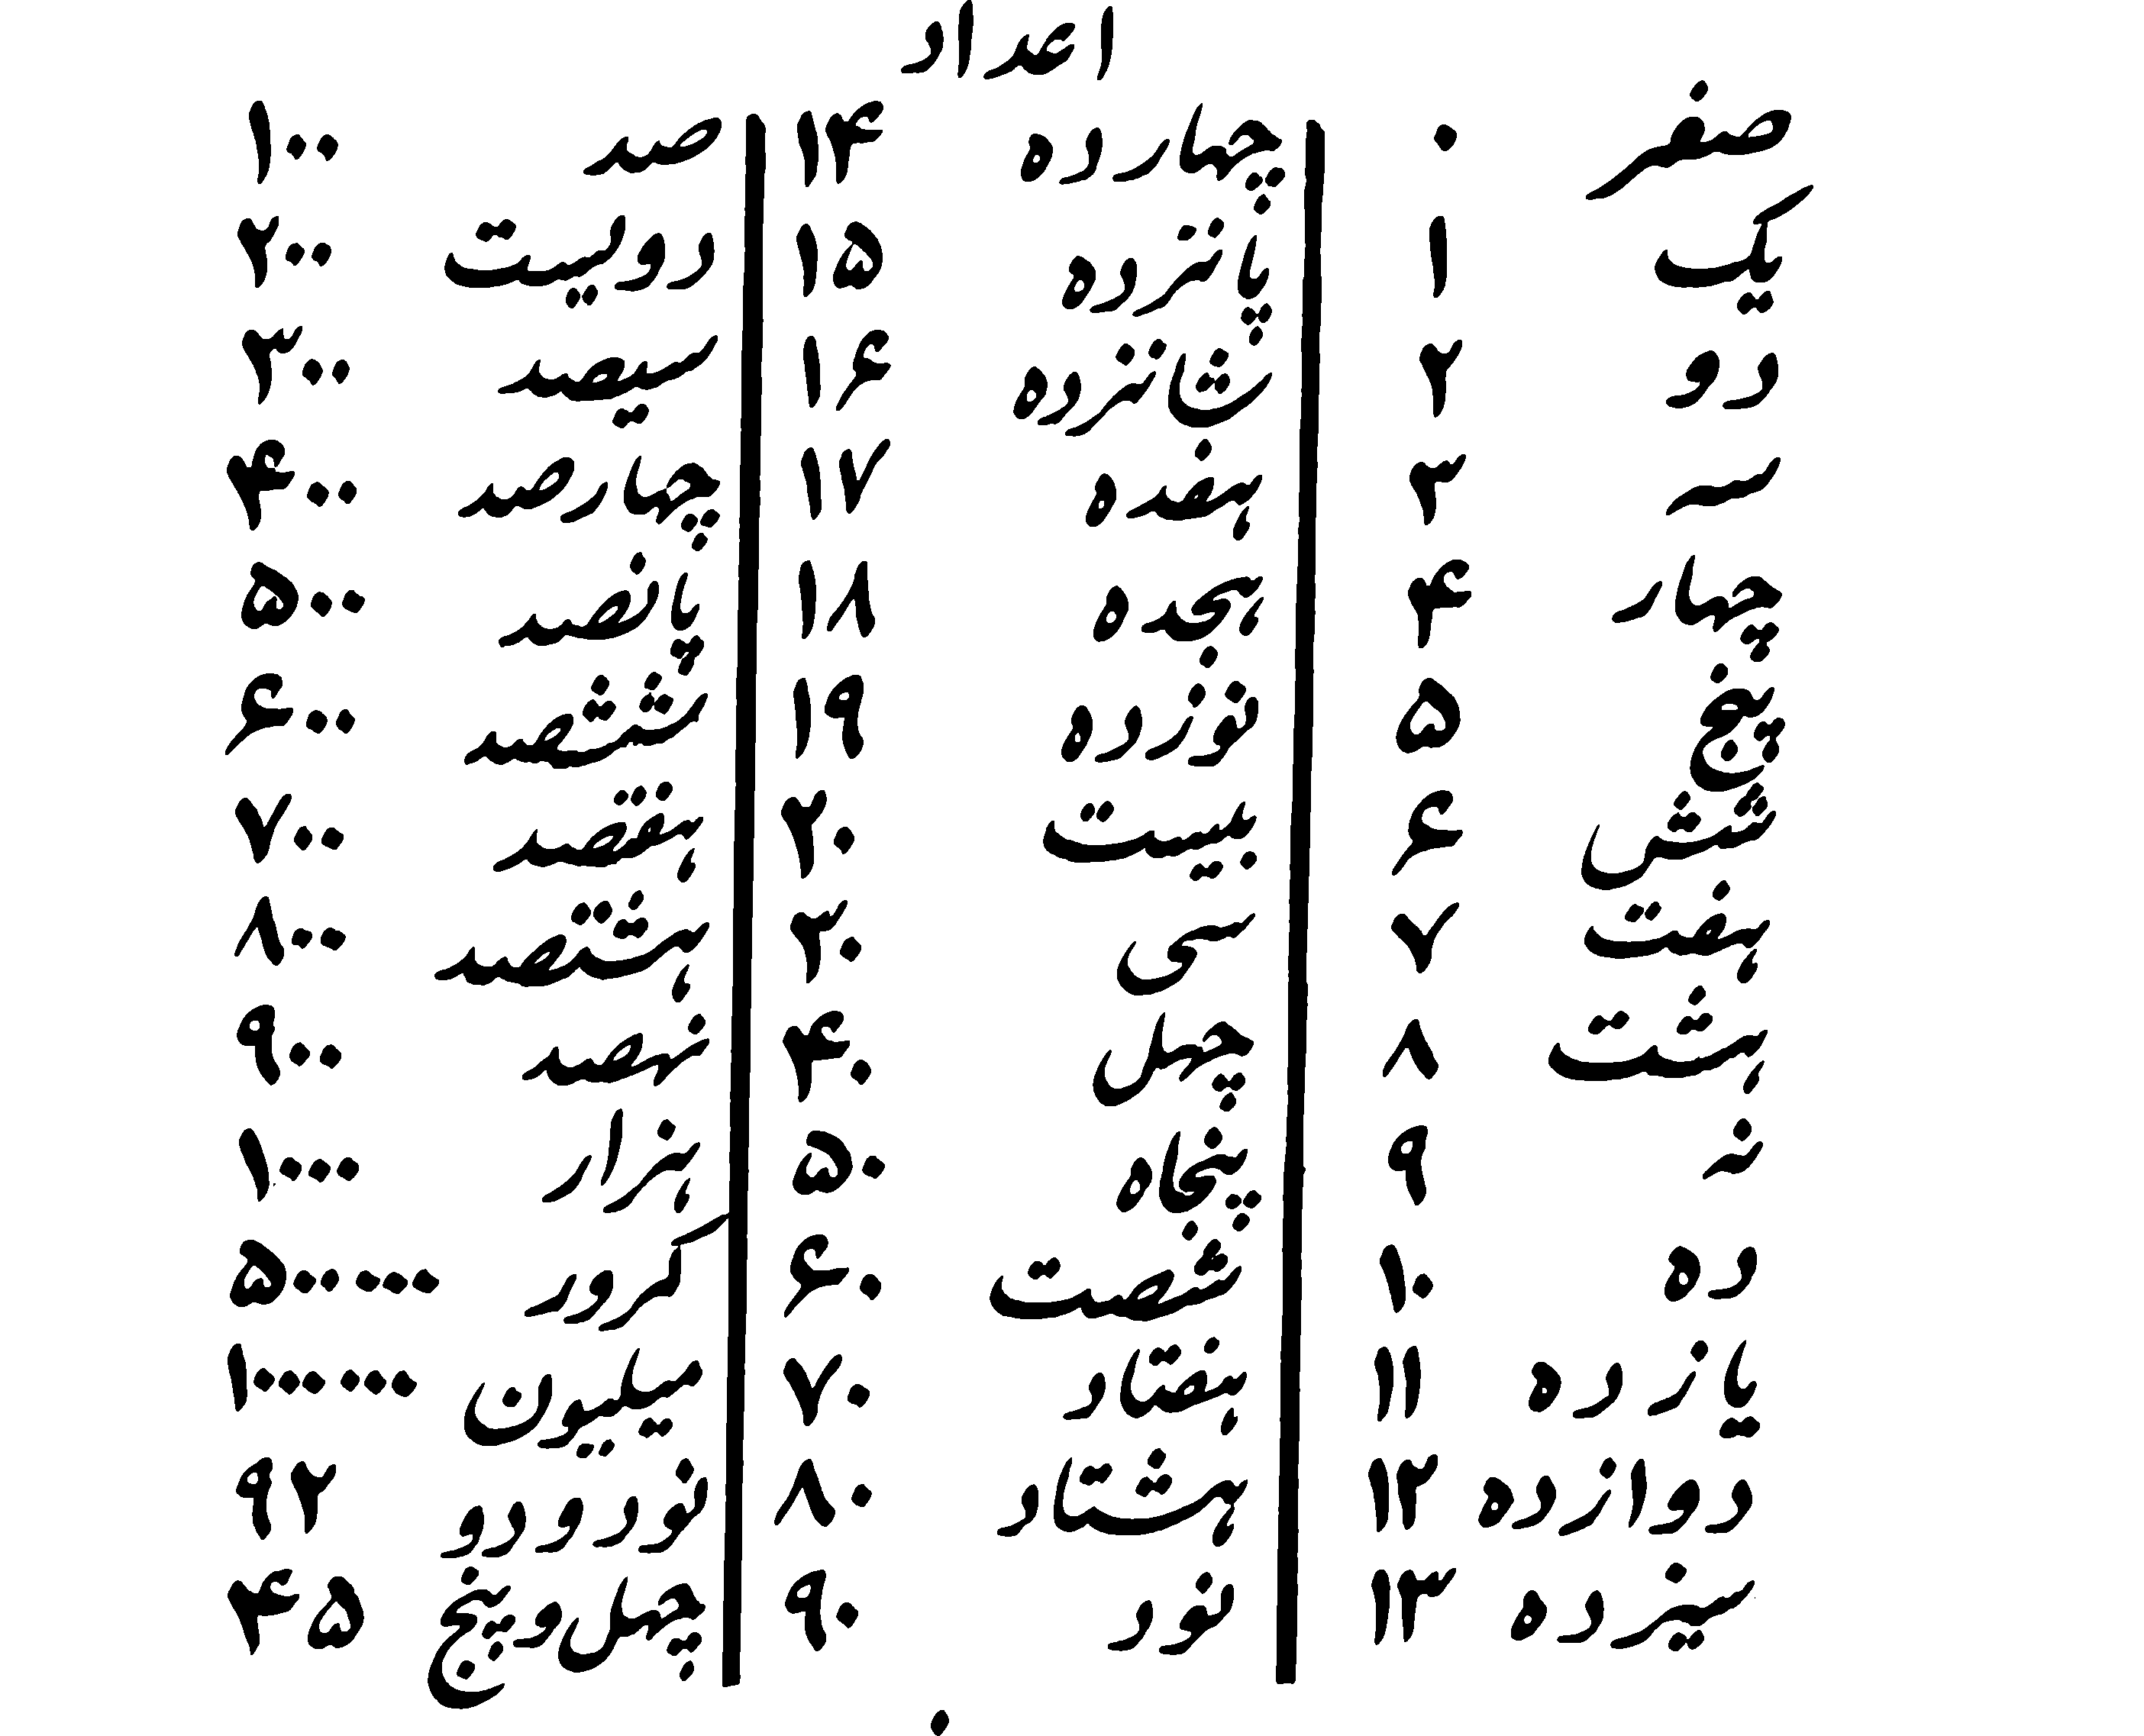 اعداد
صفر ۰
یک ۱
دو ۲
سه ۳
چهار ۴
پنج ۵
شش ۶
هفت ۷
هشت ۸
نه ۹
ده ۱۰
یازده ۱۱
دوازده ۱۲
سیزده ۱۳
چهارده ۱۴
پانزده ۱۵
شانزده ۱۶
هفده ۱۷
هجده ۱۸
نوزده ۱۹
بیست ۲۰
سی ۳۰
چهل ۴۰
پنجاه ۵۰
شصت ۶۰
هفتاد ۷۰
هشتاد ۸۰
نود ۹۰
صد ۱۰۰
دویست ۲۰۰
سیصد ۳۰۰
چهارصد ۴۰۰
پانصد ۵۰۰
ششصد ۶۰۰
هفتصد ۷۰۰
هشتصد ۸۰۰
نهصد ۹۰۰
هزار ۱۰۰۰
کرور ۵۰۰۰۰۰
میلیون ۱۰۰۰۰۰۰
نود و دو ۹۲
چهل و پنج ۴۵